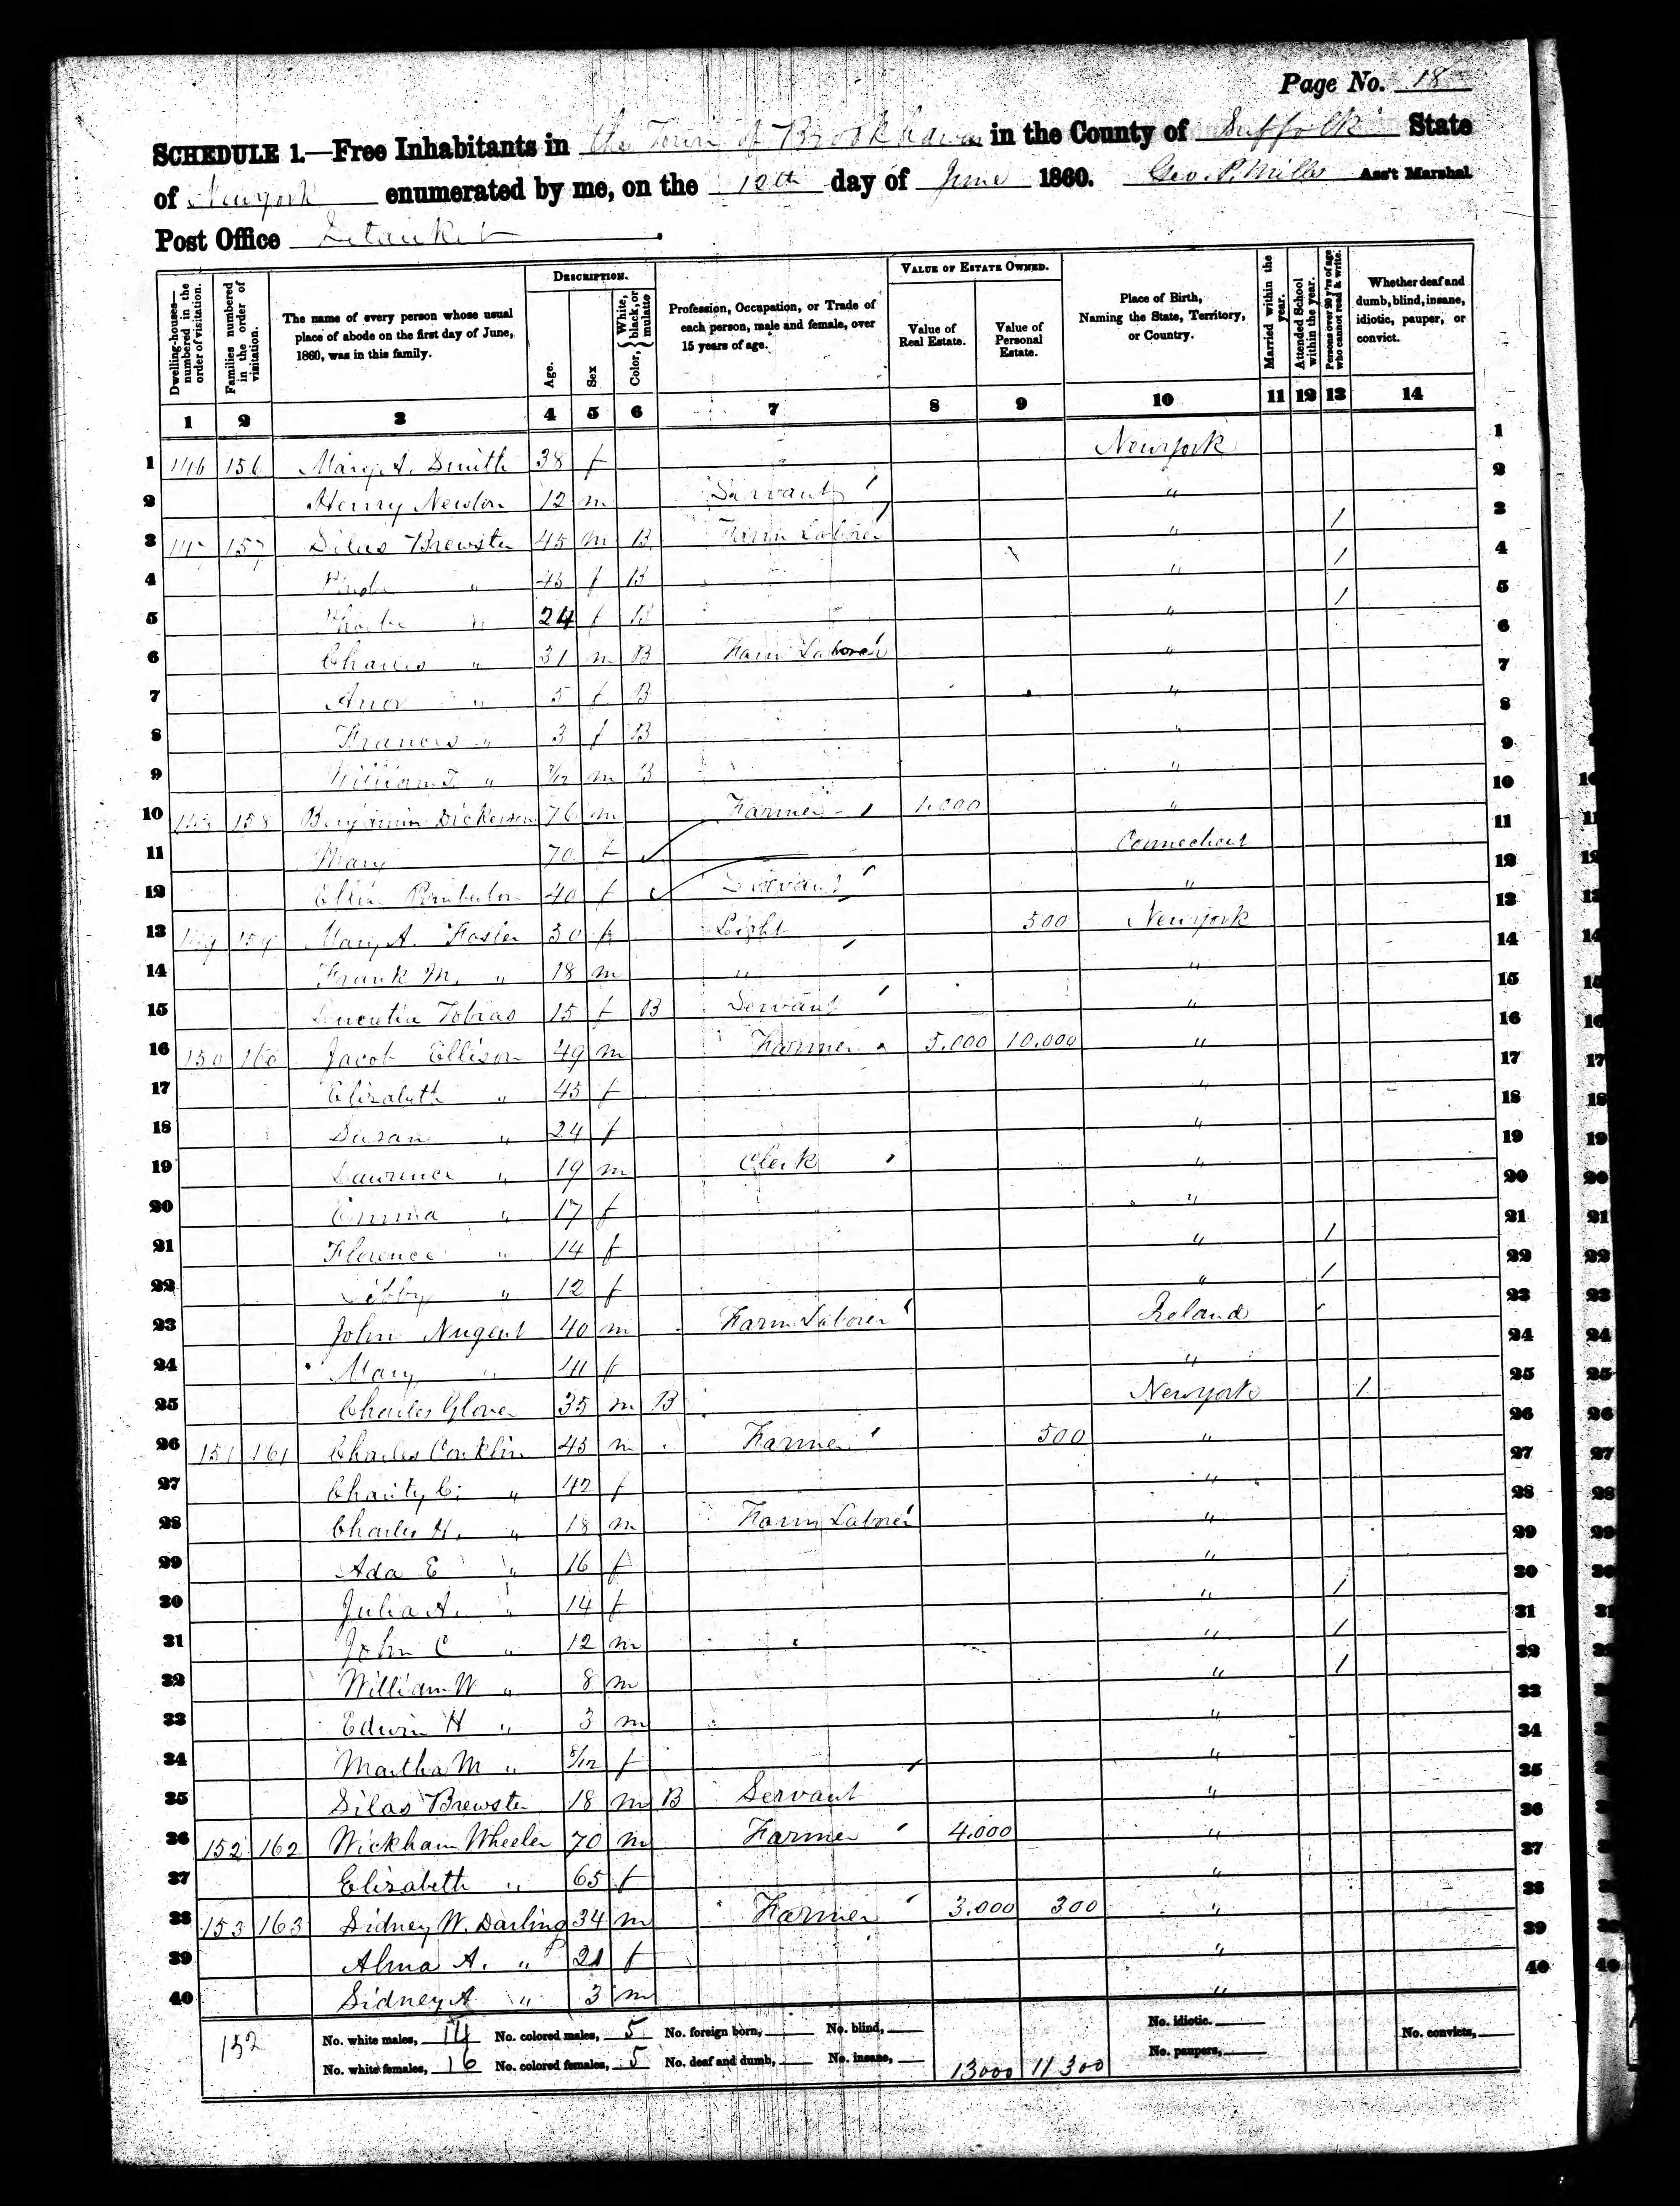 Page No. 18
SCHEDULE 1.—Free Inhabitants in the Town of Brookhaven in the County of Suffolk State
of New york enumerated by me, on the 12th day of June 1860. Geo. P. Mills Ass't Marshal
Post Office Setauket
Dwelling-houses—numbered in the order of visitation. Families numbered in the order of visitation. The name of every person whose usual place of abode on the first day of June, 1860, was in this family. DESCRIPTION. Age. Sex Color, { White, black, or mulatto Profession, Occupation, or Trade of each person, male and female, over 15 years of age. VALUE OF ESTATE OWNED. Value of Real Estate. Value of Personal Estate. Place of Birth, Naming the State, Territory, or Country. Married within the year. Attended School within the year. Persons over 20 y'rs of age who cannot read & write. Whether deaf and dumb, blind, insane, idiotic, pauper, or convict.
1 2 3 4 5 6 7 8 9 10 11 12 13 14
1 146 156 Mary A. Smith 38 f New york 1
2 Henry Newton 12 m Servant " 2
3 157 Silas Brewster 45 m B Farm Laborer " / 3
4 " 45 f B " / 4
5 " 24 f B " / 5
6 Charles " 31 m B Farm Laborer " 6
7 " 5 f B " 7
8 Francis " 3 f B " 8
9 William T. " /12 m B " 9
10 158 Benjamin Dickerson 76 m Farmer 1.000 " 10
11 Mary 70 f Connecticut 11
12 Ellen Pemberton 40 f Servant " 12
13 149 159 Mary A. Foster 30 f Light 500 New york 13
14 Frank M. " 18 m " " 14
15 Lucretia Tobias 15 f B Servant " 15
16 150 160 Jacob Ellison 49 m Farmer 5.000 10.000 " 16
17 Elizabeth " 45 f " 17
18 Susan " 24 f " 18
19 Laurence " 19 m Clerk " 19
20 Emma " 17 f " 20
21 Florence " 14 f " / 21
22 Libby " 12 f " / 22
23 John Nugent 40 m Farm Laborer Ireland 23
24 Mary " 41 f " 24
25 Charles Glover 35 m B New york / 25
26 151 161 Charles Conklin 45 m Farmer 500 " 26
27 Charity C. " 42 f " 27
28 Charles H. " 18 m Farm Laborer " 28
29 Ada E " 16 f " 29
30 Julia A. " 14 f " / 30
31 John C " 12 m " / 31
32 William W " 8 m " / 32
33 Edwin H " 3 m " 33
34 Martha M " 8/12 f " 34
35 Silas Brewster 18 m B Servant " 35
36 152 162 Wickham Wheeler 70 m Farmer 4.000 " 36
37 Elizabeth " 65 f " 37
38 153 163 Sidney W. Darling 34 m Farmer 3.000 300 " 38
39 Alma A. " 21 f " 39
40 Sidney A " 3 m " 40
152 No. white males, 14 No. colored males, 5 No. foreign born, No. blind, No. idiotic. No. convicts,
No. white females, 16 No. colored females, 5 No. deaf and dumb, No. insane, 13000 11 300 No. paupers,